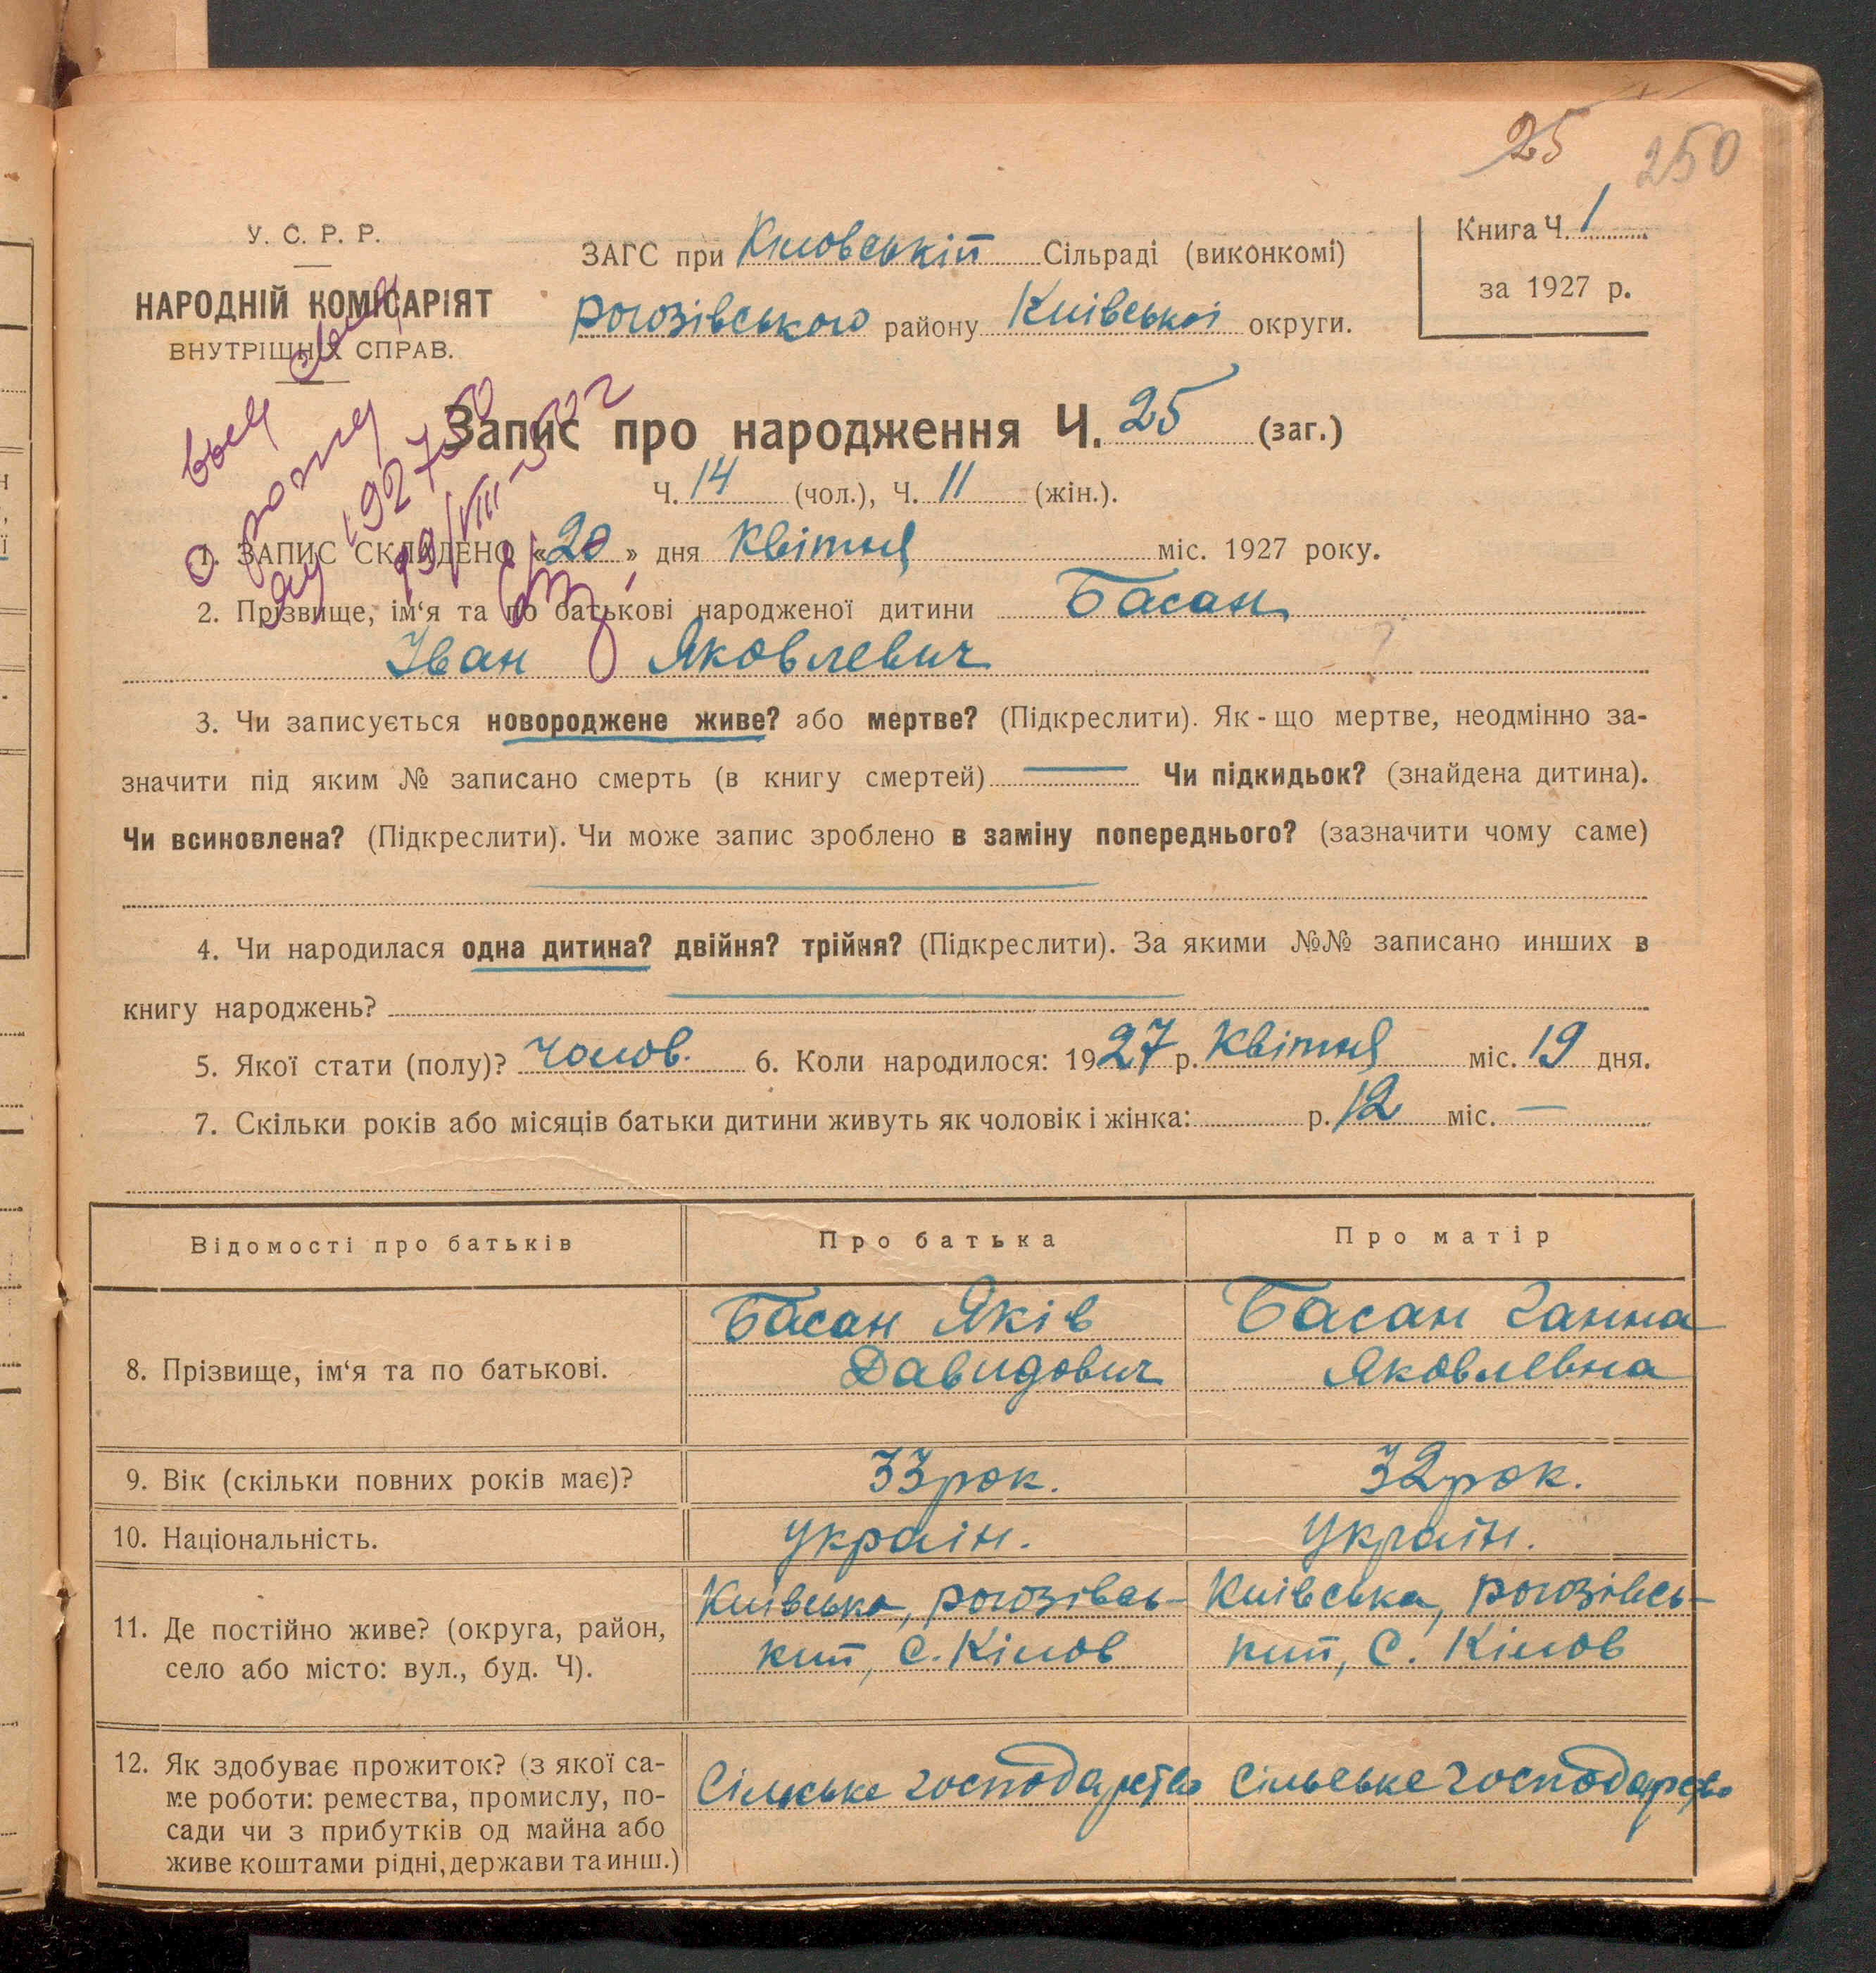 25 250
У. С. Р. Р.
НАРОДНІЙ КОМІСАРІЯТ
ВНУТРІШНІХ СПРАВ.
ЗАГС при Киловській Сільраді (виконкомі)
Рогозівського району Київської округи.
Книга Ч. 1
за 1927 р.
Запис про народження Ч. 25 (заг.)
Ч. 14 (чол.), Ч. 11 (жін.).
1. ЗАПИС СКЛАДЕНО «20» дня Квітня міс. 1927 року.
2. Прізвище, ім‘я та по батькові народженої дитини Басан
Іван Яковлевич
3. Чи записується новороджене живе? або мертве? (Підкреслити). Як-що мертве, неодмінно за-
значити під яким № записано смерть (в книгу смертей) — Чи підкидьок? (знайдена дитина).
Чи всиновлена? (Підкреслити). Чи може запис зроблено в заміну попереднього? (зазначити чому саме)
4. Чи народилася одна дитина? двійня? трійня? (Підкреслити). За якими №№ записано инших в
книгу народжень?
5. Якої стати (полу)? Чолов. 6. Коли народилося: 1927 р. Квітня міс. 19 дня.
7. Скільки років або місяців батьки дитини живуть як чоловік і жінка: р. 12 міс. —
Відомості про батьків Про батька Про матір
8. Прізвище, ім‘я та по батькові. Басан Яків Давидович Басан Ганна Яковлевна
9. Вік (скільки повних років має)? 33 рок. 32 рок.
10. Національність. україн. україн.
11. Де постійно живе? (округа, район,
село або місто: вул., буд. Ч).
Київська, Рогозівсь-
кий, С. Кілов
Київська, Рогозівсь-
кий, С. Кілов
12. Як здобуває прожиток? (з якої са-
ме роботи: ремества, промислу, по-
сади чи з прибутків од майна або
живе коштами рідні, держави та инш.)
Сільське господарство Сільське господарство